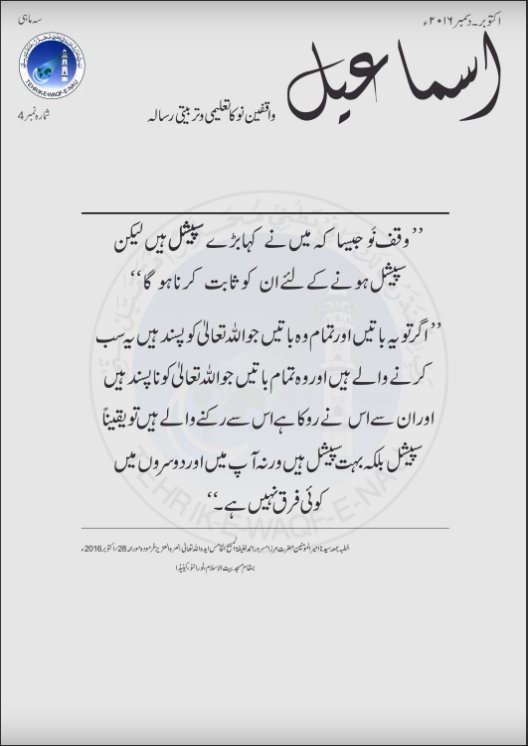 سہ ماہی
اکتوبر۔دسمبر ۲۰۱۶ء
اسماعیل
TEHRIK-E-WAQF-E-NAU
واقفین نو کا تعلیمی و تربیتی رسالہ
شمارہ نمبر 4
’’وقف نَو جیسا کہ میں نے کہا بڑے سپیشل ہیں لیکن
سپیشل ہونے کے لئے ان کو ثابت کرنا ہو گا‘‘
’’اگر تو یہ باتیں اور تمام وہ باتیں جو اللہ تعالیٰ کو پسند ہیں یہ سب
کرنے والے ہیں اور وہ تمام باتیں جو اللہ تعالیٰ کو ناپسند ہیں
اور ان سے اس نے روکا ہے اس سے رکنے والے ہیں تو یقیناً
سپیشل بلکہ بہت سپیشل ہیں ورنہ آپ میں اور دوسروں میں
کوئی فرق نہیں ہے۔‘‘
TEHRIK-E-WAQF-E-NAU
خطبہ جمعہ سیدنا امیر المومنین حضرت مرزا مسرور احمد خلیفۃ المسیح الخامس ایدہ اللہ تعالیٰ بنصرہ العزیز فرمودہ مورخہ 28؍اکتوبر 2016ء
بمقام مسجد بیت الاسلام، ٹورانٹو، کینیڈا